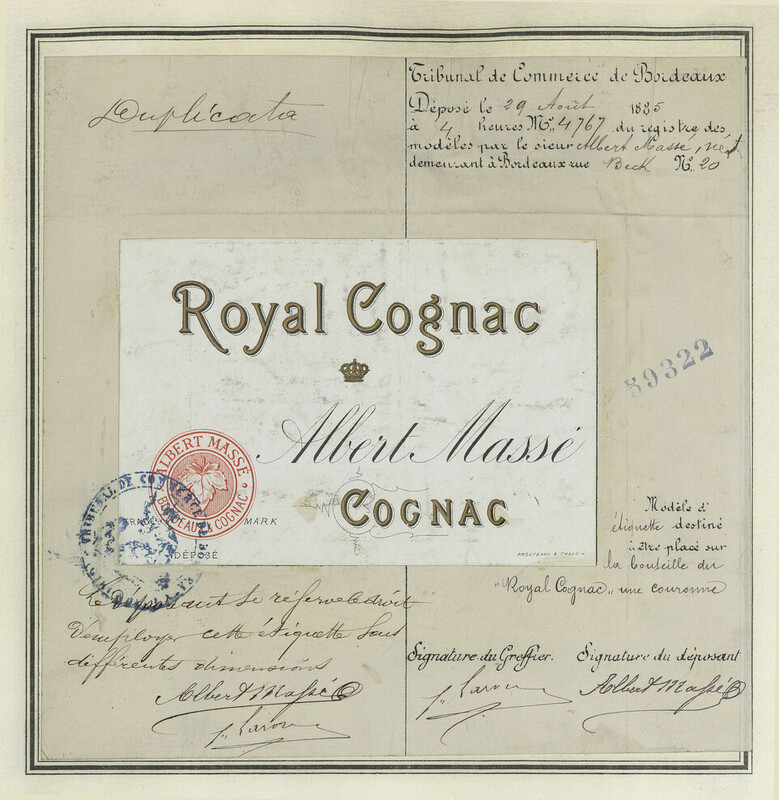 Duplicata
Tribunal de Commerce de Bordeaux
Déposé le 29 Août 1885
à 4 heures Nº 4767 du registre des
modèles par le sieur Albert Massé, négt
demeurant à Bordeaux rue Beck Nº 20
Royal Cognac
Albert Massé
COGNAC
ALBERT MASSÉ
BORDEAUX & COGNAC
TRADE MARK
DÉPOSÉ
PROUTEAUX & CHAUV
TRIBUNAL DE COMMERCE
59322
Modèle d'
étiquette destiné
à être placé sur
la bouteille du
"Royal Cognac" une couronne
Le Déposant se réserve le droit
d'employer cette étiquette sous
différentes dimensions
Albert Massé
Signature du Greffier. Signature du déposant
Albert Massé